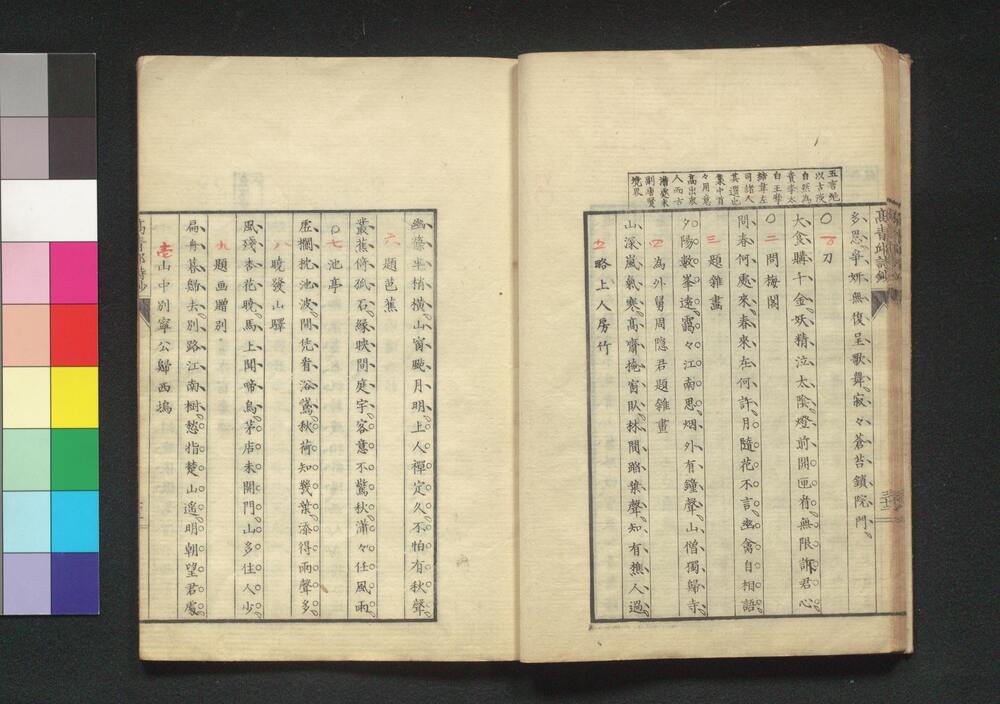 五言絶
以古淡
自然為
貴李太
白王摩
詰韋左
司諸人
其選也
集中首
々用意
高出衆
人而古
澹處未
到唐賢
境界
高青邱詩鈔
多思爭妍無復呈歌舞寂々蒼苔鎖院門
〇一刀
大食購千金妖精泣太陰燈前開匣看無限訴君心
〇二問梅閣
問春何處來春來在何許月隨花不言幽禽自相語
三題雜畫
夕陽數峯遠靄々江南思烟外有鐘聲山僧獨歸寺
四為外舅周隱君題雜畫
山深嵐氣寒高齋掩窗臥林間踏葉聲知有樵人過
五略上人房竹
幽叢半拍橫山窗颭月明上人禪定久不怕有秋聲
六題芭蕉
叢蕉倚孤石緑映間庭宇客意不驚秋瀟々任風雨
〇七池亭
虛攔枕池波閒凭看浴鵞秋荷知幾葉添得雨聲多
八曉發山驛
風殘杏花曉馬上聞啼鳥茅店未開門山多住人少
九題画贈別
扁舟暮欲去別路江南樹愁指楚山遙明朝望君處
山中別寧公歸西塢
高青邱詩鈔